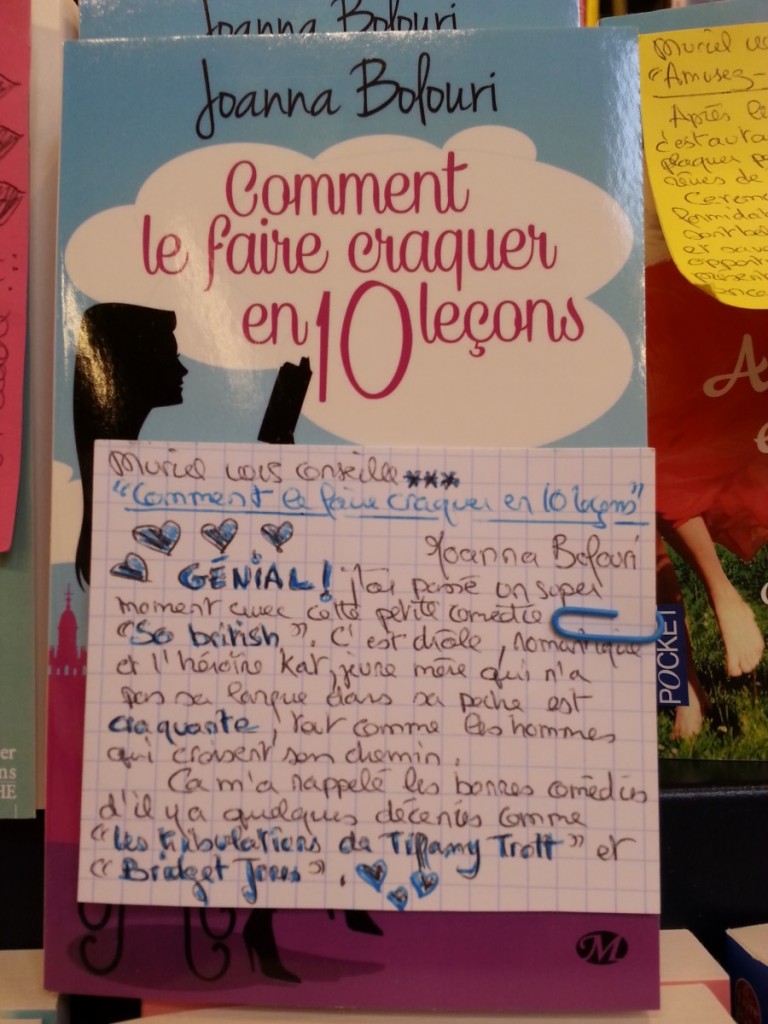 Joanna Bolouri
Joanna Bolouri
Comment
le faire craquer
en 10 leçons
Muriel vous conseille ***
"Comment le faire craquer en 10 leçons"
Joanna Bolouri
GÉNIAL! J'ai passé un super
moment avec cette petite comédie
"So british". C'est drôle, romantique
et l'héroïne Kat, jeune mère qui n'a
pas sa langue dans sa poche est
craquante, tout comme les hommes
qui croisent son chemin.
Ca m'a rappelé les bonnes comédies
d'il y a quelques décenies comme
"Les tribulations de Tiffany Trott" et
"Bridget Jones".
M
Muriel vous
"Amusez-
Après le
c'est
plaquer
rêves de
formidable
et
POCKET
A
er
ns
HE